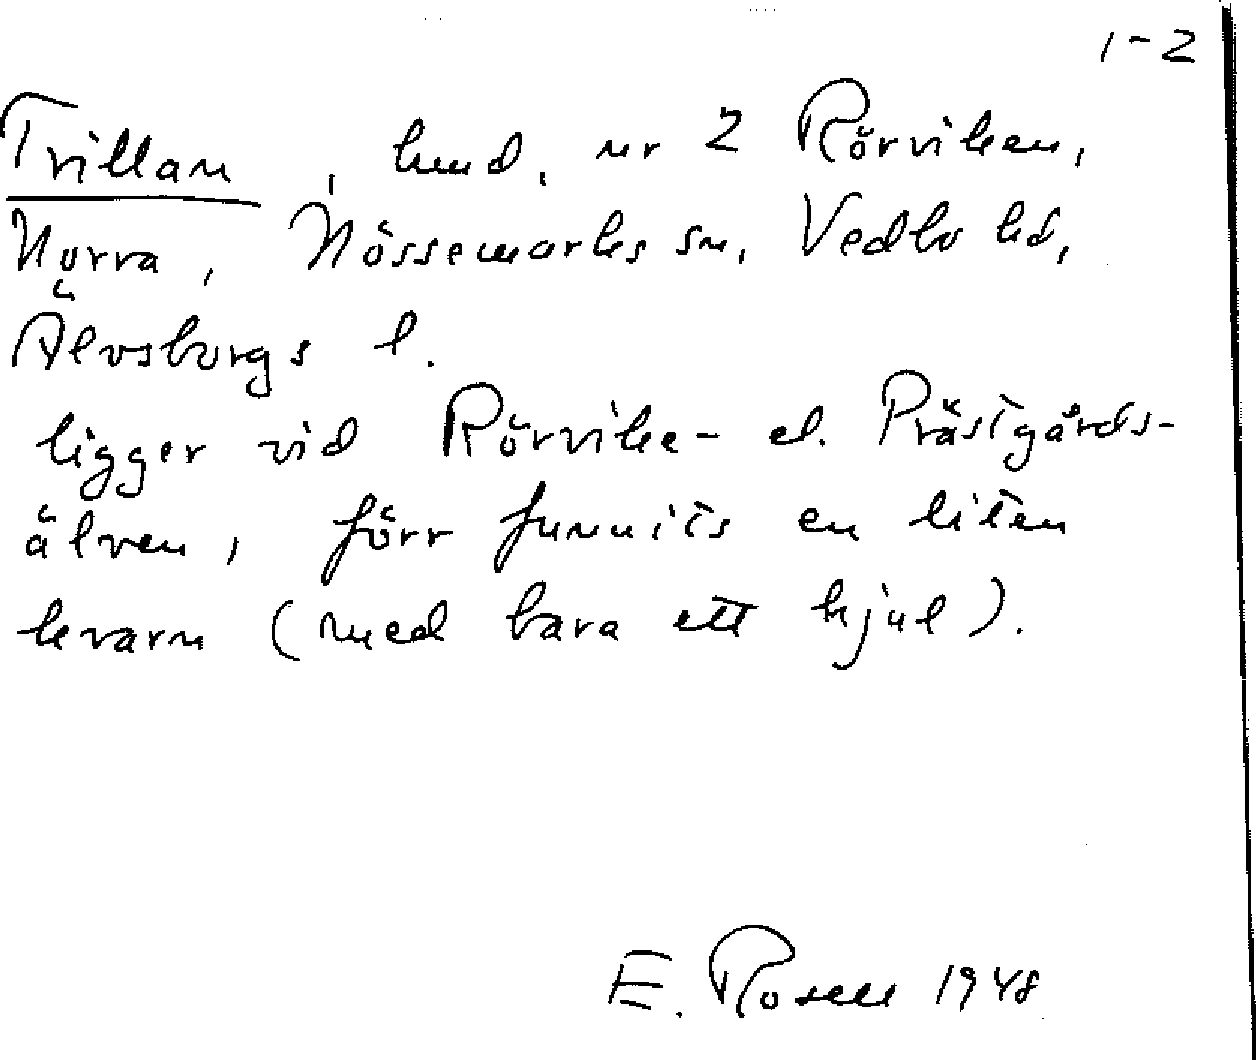 1-2
Trillan, lund, nr 2 Rörviken,
Norra, Nössemarks sn, Vedbo hd,
Älvsborgs l.
ligger vid Rörvike- el. Prästgårds-
älven, förr funnits en liten
kvarn (med bara ett hjul).
E. Rosell 1948